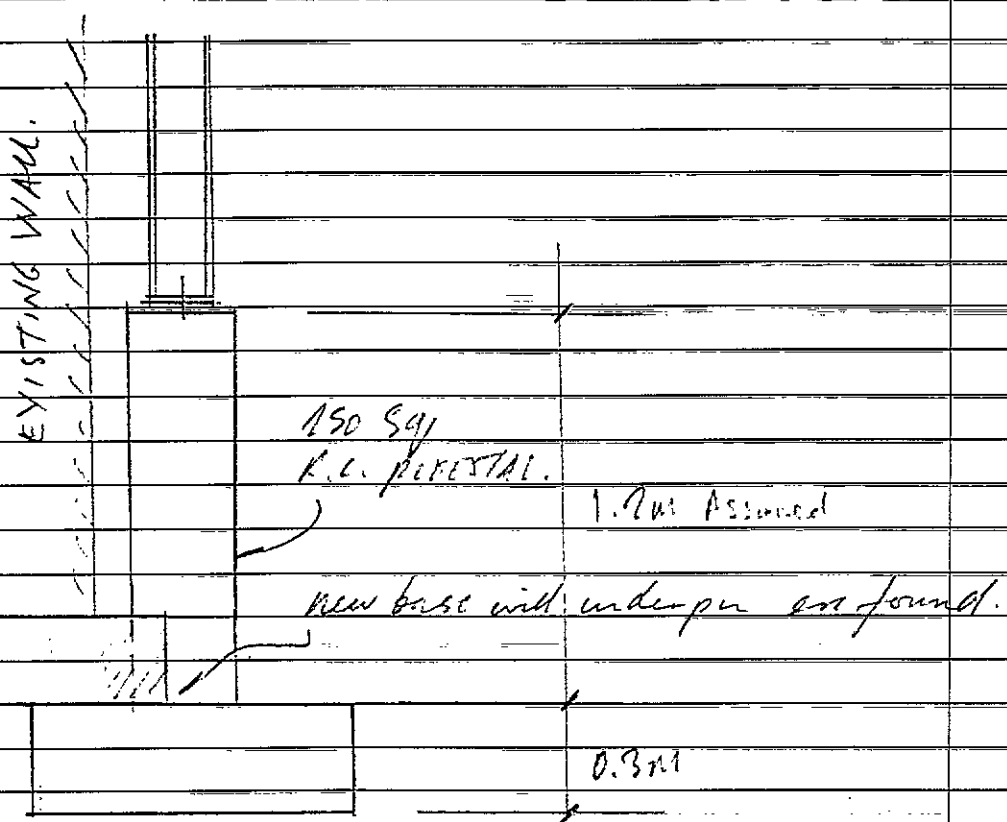 EXISTING WALL.
150 Sq,
R.C. PEDESTAL.
1.2m Assumed
new base will underpin exe found.
0.3m